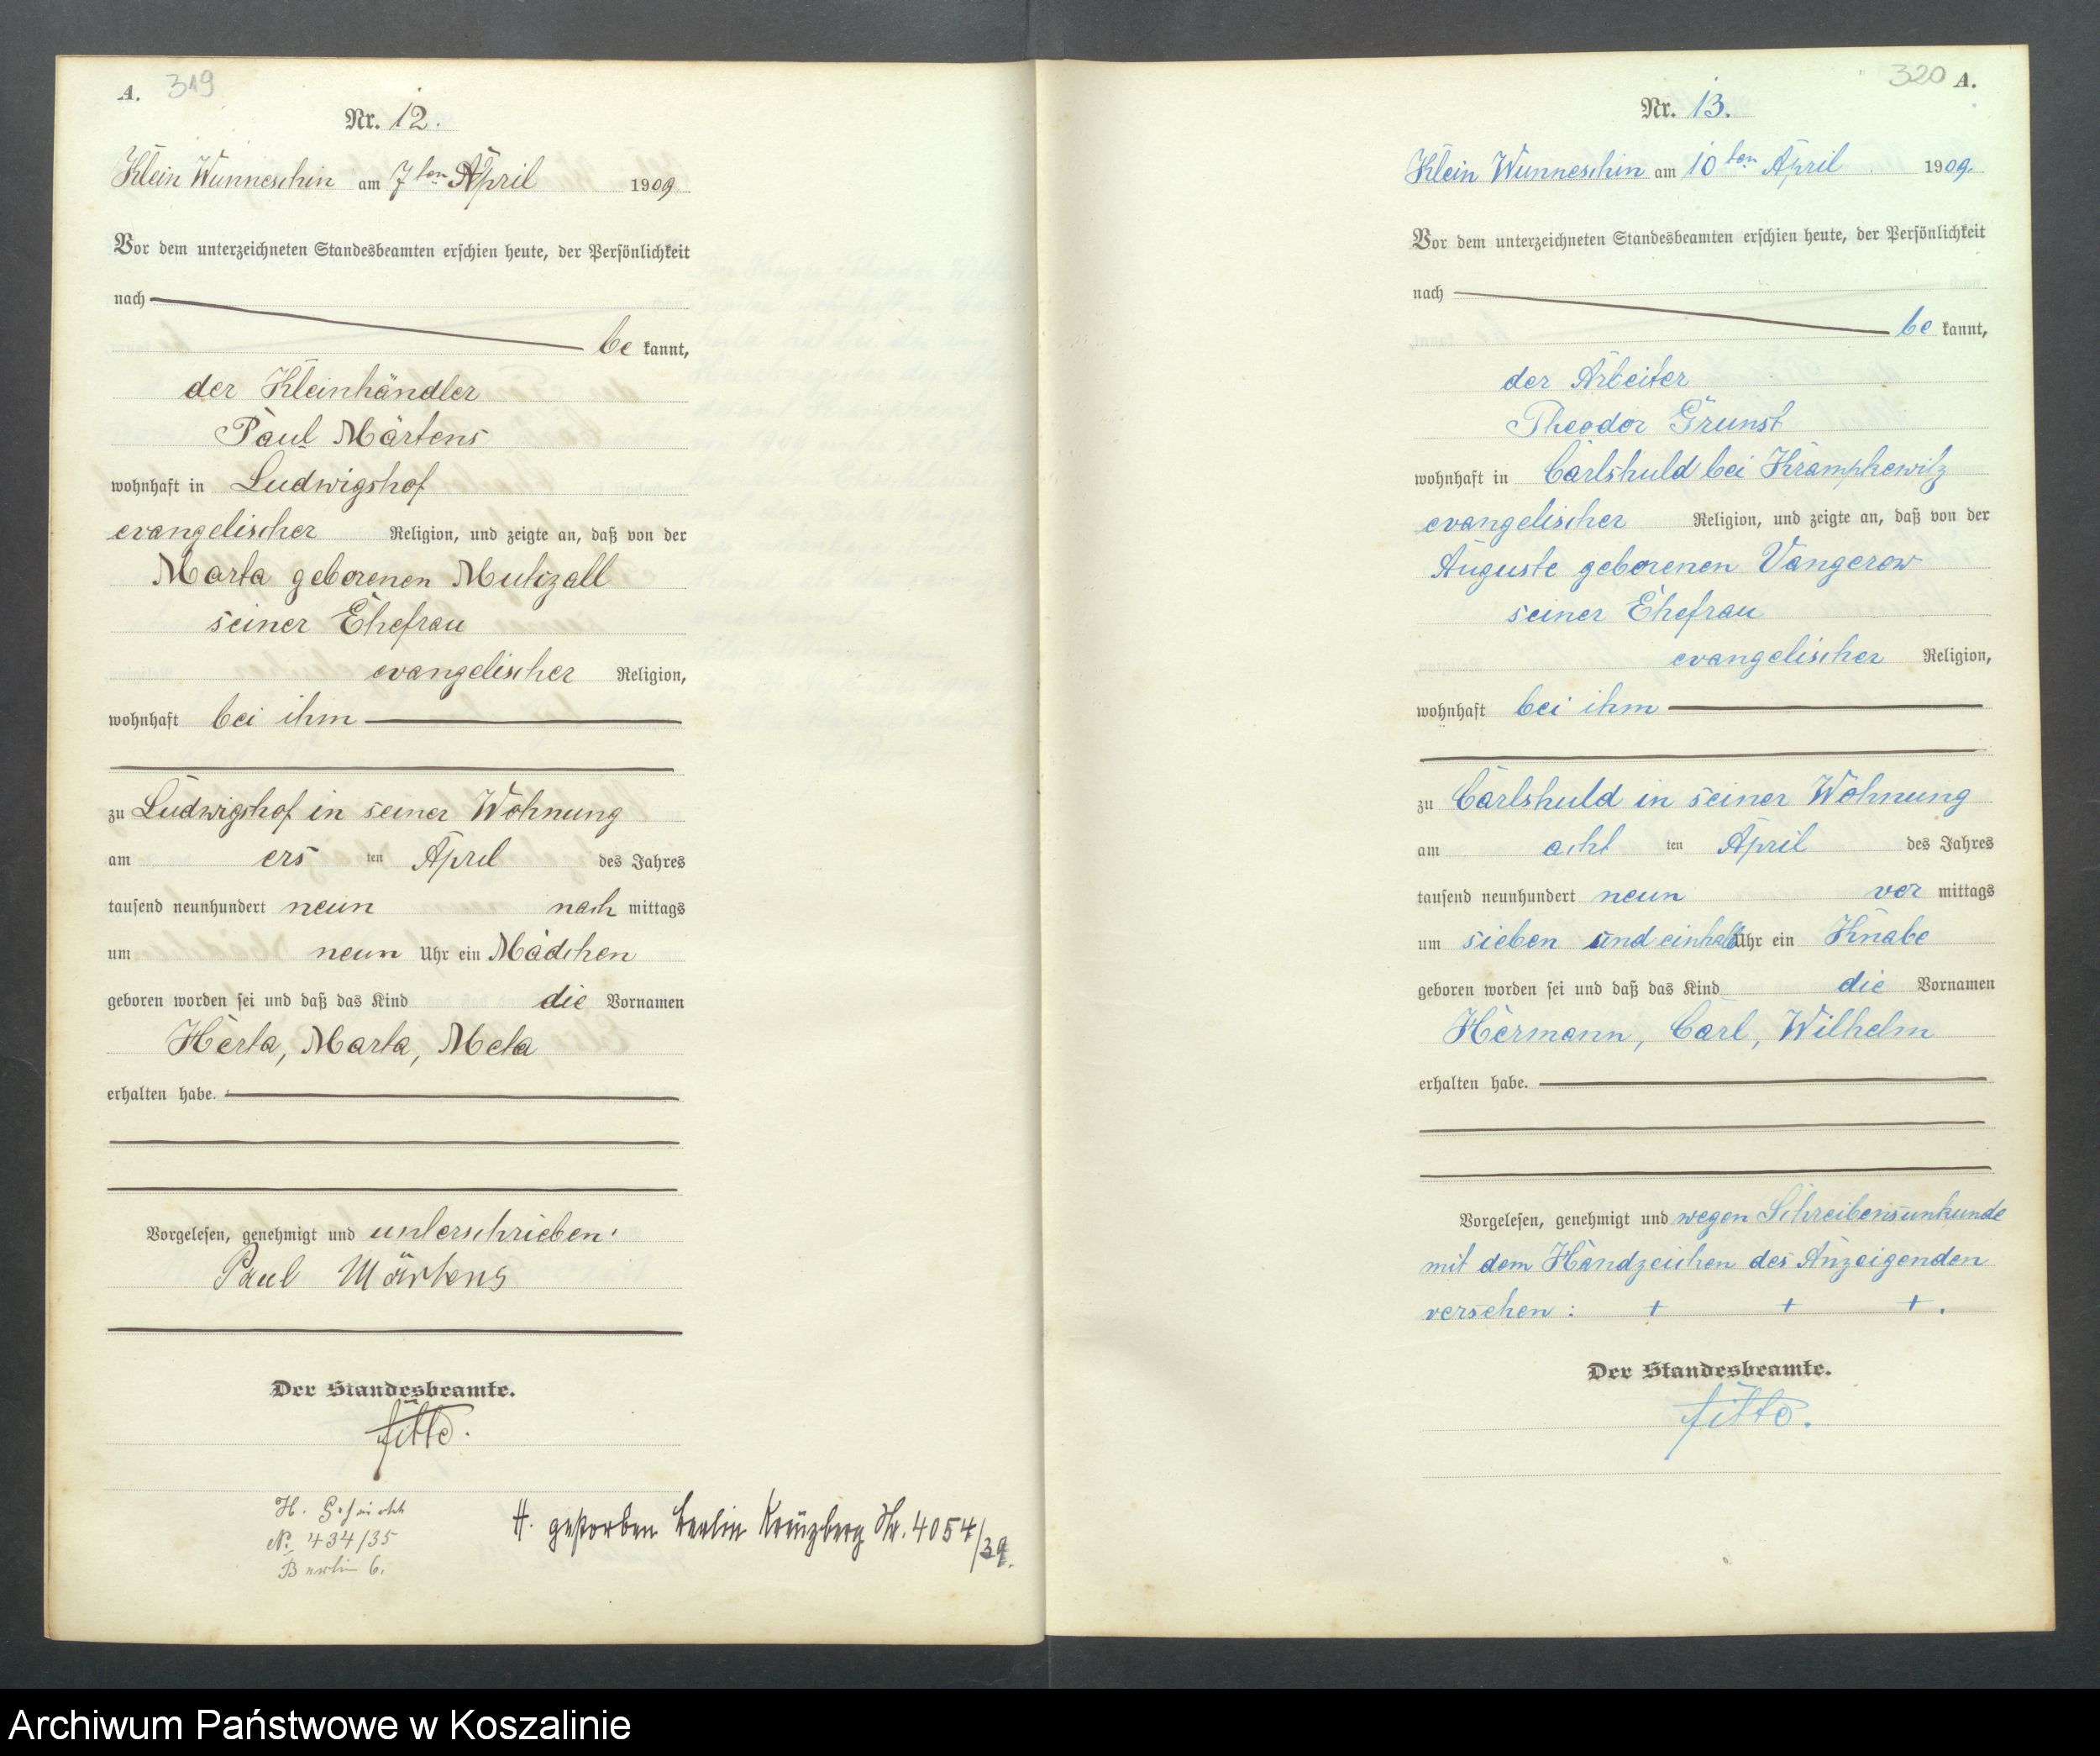 A. 319
Nr. 12.
Klein Wunneschin am 7ten April 1909
Vor dem unterzeichneten Standesbeamten erschien heute, der Persönlichkeit
nach
be kannt,
der Kleinhändler
Paul Märtens
wohnhaft in Ludwigshof
evangelischer Religion, und zeigte an, daß von der
Marta geborenen
seiner Ehefrau
evangelischer Religion,
wohnhaft bei ihm
zu Ludwigshof in seiner Wohnung
am ers ten April des Jahres
tausend neunhundert neun nach mittags
um neun Uhr ein Mädchen
geboren worden sei und daß das Kind die Vornamen
Herta, Marta, Meta
erhalten habe.
Vorgelesen, genehmigt und unterschrieben.
Paul Märtens
Der Standesbeamte.
H.
No 434/35
Berlin 6.
H. gestorben Berlin Kreuzberg Nr. 4054/39.
320 A.
Nr. 13.
Klein Wunneschin am 10ten April 1909.
Vor dem unterzeichneten Standesbeamten erschien heute, der Persönlichkeit
nach
be kannt,
der Arbeiter
Theodor Grunst
wohnhaft in Carlshuld bei Krampkewitz
evangelischer Religion, und zeigte an, daß von der
Auguste geborenen Vangerow
seiner Ehefrau
evangelischer Religion,
wohnhaft bei ihm
zu Carlshuld in seiner Wohnung
am acht ten April des Jahres
tausend neunhundert neun vor mittags
um sieben und einhalb Uhr ein Knabe
geboren worden sei und daß das Kind die Vornamen
Hermann, Carl, Wilhelm
erhalten habe.
Vorgelesen, genehmigt und wegen Schreibensunkunde
mit dem Handzeichen des Anzeigenden
versehen : + + + .
Der Standesbeamte.
Archiwum Państwowe w Koszalinie